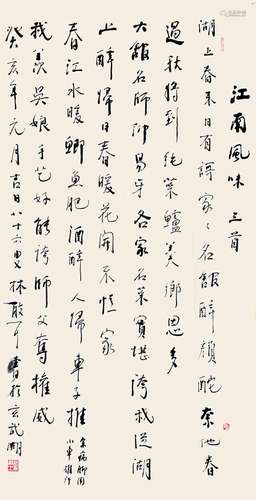 江南風味三首
湖上春来日有謌家々名館醉顏酡奈池春
過秋将到純菜鱸羹鄉思多
大館名師仰易牙各家名菜實堪誇我從湖
上醉歸日春暖花開不憶家
春江水暖鯽魚肥酒醉人歸車子推
余病腳用
小車推行
我羨吳娘手藝好能誇師父奪權威
癸亥年元月吉日八十六叟林散耳書於玄武湖